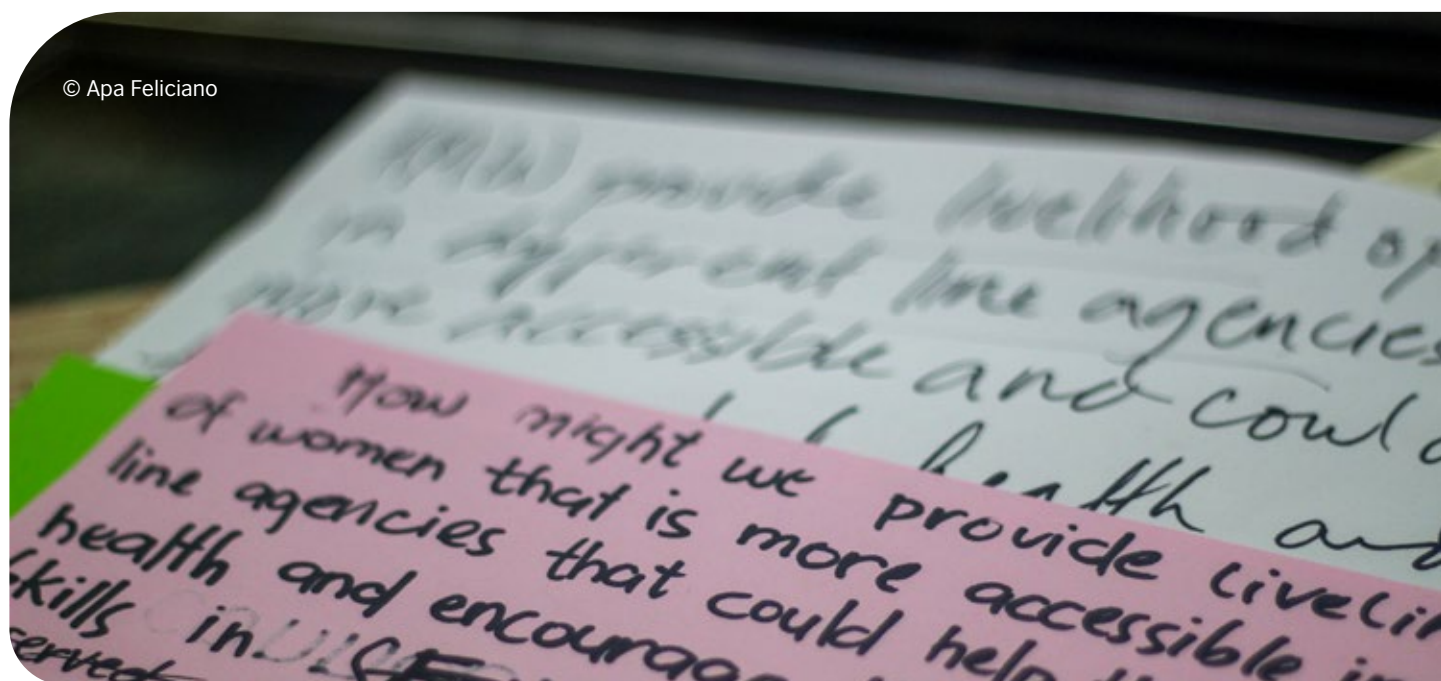 © Apa Feliciano
provide livelihood op
in different line agencies
more accessible and could
health and
How might we provide livelih
of women that is more accessible in
line agencies that could help th
health and encourage
skills in
served